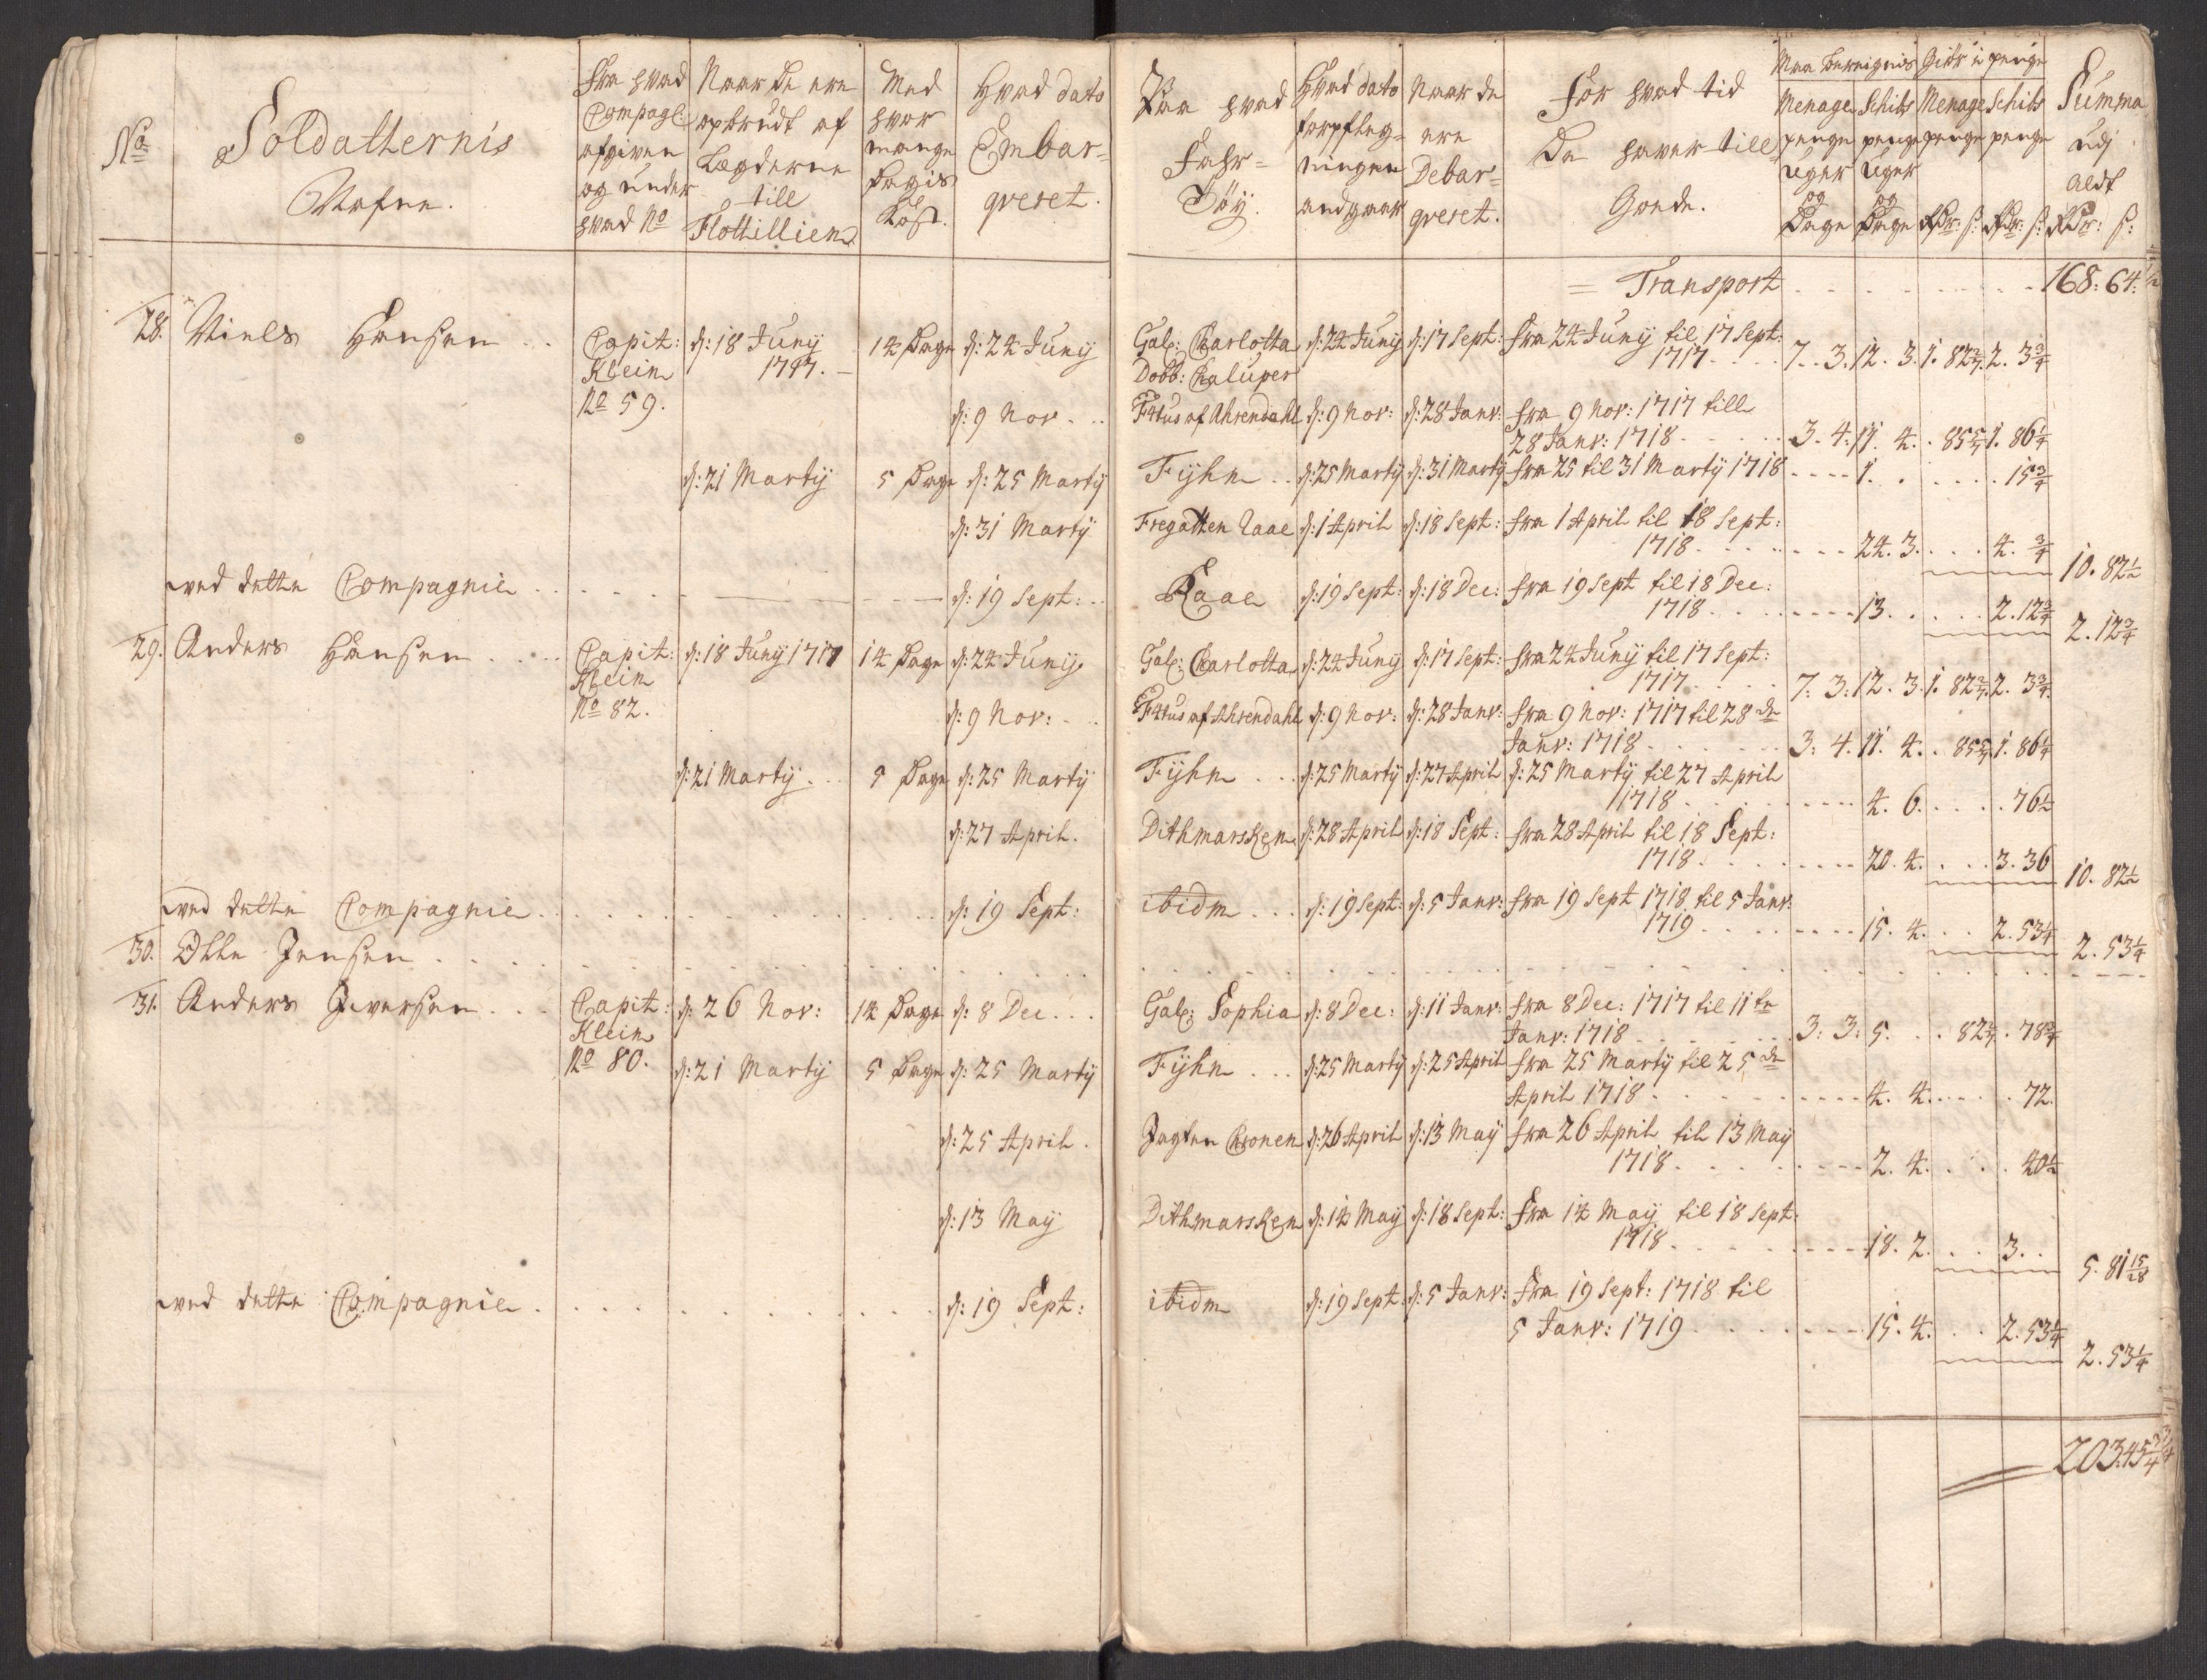 No
Soldatternis
Nafne.
Fra hvad
Compagl:
afgiven
og under
hvad No
Naar De ere
opbrudt af
Lægderne
till
Flottillien
Med
hvor
mange
Dagis
Kost.
Hvad dato
Embar-
qveret.
Paa hvad
Fahr-
Töy.
Hvad dato
forpfleg-
ningen
andgaar
Naar de
ere
Debar-
qveret.
For hvad tid
De haver till
Gode.
Menage
penge
Uger
og
Dage
Schibs
penge
Uger
og
Dage
Giör i penge
Menage
penge
Rdr: ß:
Schibs
penge
Rdr: ß:
Summa
udj
aldt
Rdr: ß:
= Transport - - - - - - - - - 168: 64: 1/2
28. Niels Hansen . . Capit: d: 18 Juny 14 Dage d: 24 Juny Gal: Charlotta d: 24 Juny d: 17 Sept: fra 24 Juny til 17 Sept:
Klein 1717. - Dobb: Chaluper 1717 - - - 7. 3. 12. 3. 1. 82 2/7. 2. 3 3/4
No 59. d: 9 Nov. . . af Ahrendahl d: 9 Nov: d: 28 Janv: fra 9 Nov: 1717 till
28 Janv: 1718 - - - - 3. 4. 11. 4. . 85 5/7. 1. 86 1/4
d: 21 Martÿ 5 Dage d: 25 Martÿ Fÿhn . . d: 25 Martÿ d: 31 Martÿ fra 25 til 31 Martÿ 1718 - - - - 1. . . . . . 15 3/4
d: 31 Martÿ Fregatten Raae d: 1 April d: 18 Sept: fra 1 April til 18 Sept:
1718 - - - - - - - 24. 3. . . . 4. 3/4 10. 82 1/2
ved dette Compagnie . . . . . d: 19 Sept: . . Raae d: 19 Sept: d: 18 Dec: fra 19 Sept til 18 Dec:
1718 - - - - - - - 13. . . . . 2. 12 3/4 2. 12 3/4
29. Anders Hansen . . . . Capit: d: 18 Juny 1717 14 Dage d: 24 Juny Gal: Charlotta d: 24 Juny d: 17 Sept: fra 24 Juny til 17 Sept:
Klein 1717 - - - - 7. 3. 12. 3. 1. 82 2/7. 2. 3 3/4.
No 82. d: 9 Nov: . . af Ahrendahl d: 9 Nov: d: 28 Janv: fra 9 Nov: 1717 til 28 de
Janv: 1718 - - - - - 3. 4. 11. 4. . 85 5/7. 1. 86 1/4
d: 21 Martÿ . . 5 Dage d: 25 Martÿ Fÿhn . . . d: 25 Martÿ d: 27 April d: 25 Martÿ til 27 April
1718 - - - - - - - - 4. 6. . . . . 76 1/2
d: 27 April. Dithmarsken d: 28 April d: 18 Sept: fra 28 April til 18 Sept:
1718 - - - - - - - - 20. 4. . . . 3. 36 10. 82 1/2
ved dette Compagnie . . . . . . . . . . . . d: 19 Sept: ibidm . . . d: 19 Sept: d: 5 Janv: fra 19 Sept 1718 til 5 Janv:
1719 - - - - - - - - 15. 4. . . 2. 53 1/4 2. 53 1/4
30. Olle Jensen . . . . . . . . . . . . . . . . . . . . . . . . . . . .
31. Anders Iversen . . . Capit: d: 26 Nov: 14 Dage d: 8 Dec . . . Gal: Sophia d: 8 Dec: d: 11 Janv: fra 8 Dec: 1717 til 11 te
Klein Janv: 1718 - - - - - 3. 3. 5. . . 82 2/7 . 78 3/4
No 80. d: 21 Martÿ 5 Dage d: 25 Martÿ Fÿhn . . . d: 25 Martÿ d: 25 April fra 25 Martÿ til 25 de
April 1718 - - - - - - - - - 4. 4. . . . . 72.
d: 25 April . Jagten Cronen d: 26 April d: 13 Maÿ fra 26 April til 13 Maÿ
1718 - - - - - - - - 2. 4. . . . . 40 1/2
d: 13 Maÿ Dithmarsken d: 14 Maÿ d: 18 Sept: fra 14 Maÿ til 18 Sept:
1718 - - - - - - - - 18. 2. . . 3. . 5. 81 15/28
ved dette Compagnie . . . . . . . . . . . . d: 19 Sept: ibidm d: 19 Sept: d: 5 Janv: fra 19 Sept: 1718 til
5 Janv: 1719 - - - - - - - 15. 4. . . 2. 53 1/4 2. 53 1/4
203. 45 3/4